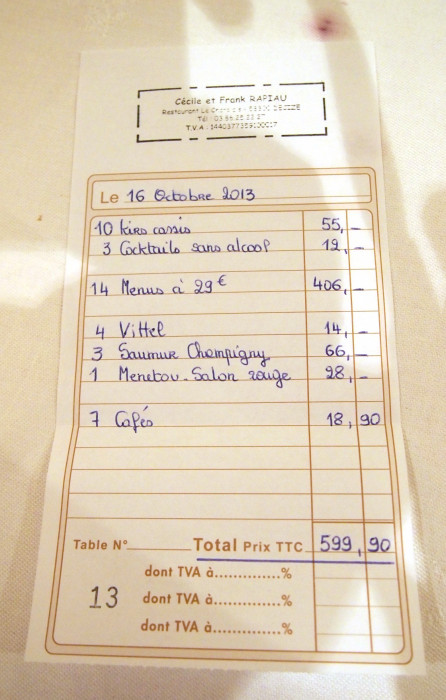 Cécile et Frank RAPIAU
Restaurant Le
Tél : 03
T.V.A
Le 16 Octobre 2013
10 kirs cassis 55, –
3 Cocktails sans alcool 12, –
14 Menus à 29 € 406, –
4 Vittel 14, –
3 Saumur Champigny 66, –
1 Menetou-Salon rouge 28, –
7 Cafés 18, 90
Table N° Total Prix TTC 599, 90
dont TVA à..............%
13 dont TVA à..............%
dont TVA à..............%